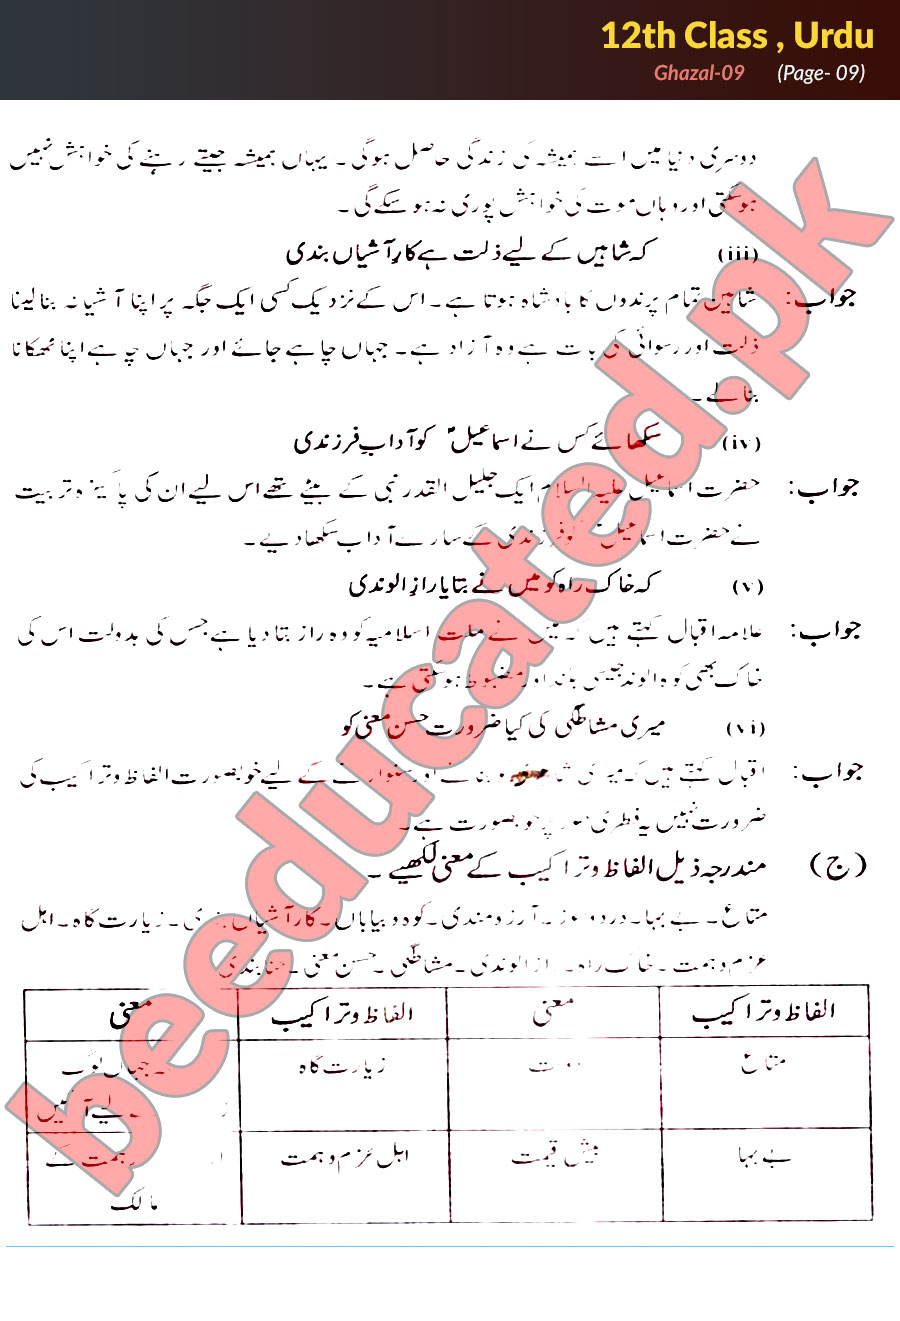 12th Class , Urdu
Ghazal-09 (Page- 09)
دوسری دنیا میں اسے ہمیشہ کی زندگی حاصل ہوگی۔ یہاں ہمیشہ جیتے رہنے کی خواہش نہیں
ہوسکتی اور وہاں موت کی خواہش پوری نہ ہوسکے گی۔
(iii) کہ شاہیں کے لیے ذلت ہے کارِ آشیاں بندی
جواب: شاہین تمام پرندوں کا بادشاہ ہوتا ہے۔ اس کے نزدیک کسی ایک جگہ پر اپنا آشیانہ بنا لینا
ذلت اور رسوائی کی بات ہے وہ آزاد ہے۔ جہاں چاہے جائے اور جہاں چاہے اپنا ٹھکانا
بنا لے۔
(iv) سکھائے کس نے اسماعیلؑ کو آدابِ فرزندی
جواب: حضرت اسماعیل علیہ السلام ایک جلیل القدر نبی کے بیٹے تھے اس لیے ان کی پاکیزہ تربیت
نے حضرت اسماعیلؑ کو فرزندی کے سارے آداب سکھا دیے۔
(v) کہ خاک راہ کو میں نے بتایا رازِ الوندی
جواب: علامہ اقبال کہتے ہیں کہ میں نے ملت اسلامیہ کو وہ راز بتا دیا ہے جس کی بدولت اس کی
خاک بھی کوہ الوند جیسی بلند اور مضبوط ہوسکتی ہے۔
(vi) میری مشاطگی کی کیا ضرورت حسن معنی کو
جواب: اقبال کہتے ہیں کہ میری نے اور سنوارنے کے لیے خوبصورت الفاظ و تراکیب کی
ضرورت نہیں یہ فطری طور پر خوبصورت ہے۔
(ج) مندرجہ ذیل الفاظ و تراکیب کے معنی لکھیے۔
متاع۔ بے بہا۔ درد و سوز۔ آرزومندی۔ کوہ و بیاباں۔ کارِ آشیاں بندی۔ زیارت گاہ۔ اہل
عزم و ہمت۔ خاک راہ۔ راز الوندی۔ مشاطگی۔ حسن معنی۔ حنا بندی
الفاظ و تراکیب معنی الفاظ و تراکیب معنی
متاع دولت زیارت گاہ جہاں لوگ
لیے آئیں
بے بہا بیش قیمت اہل عزم و ہمت ہمت کے
مالک
beeducated.pk